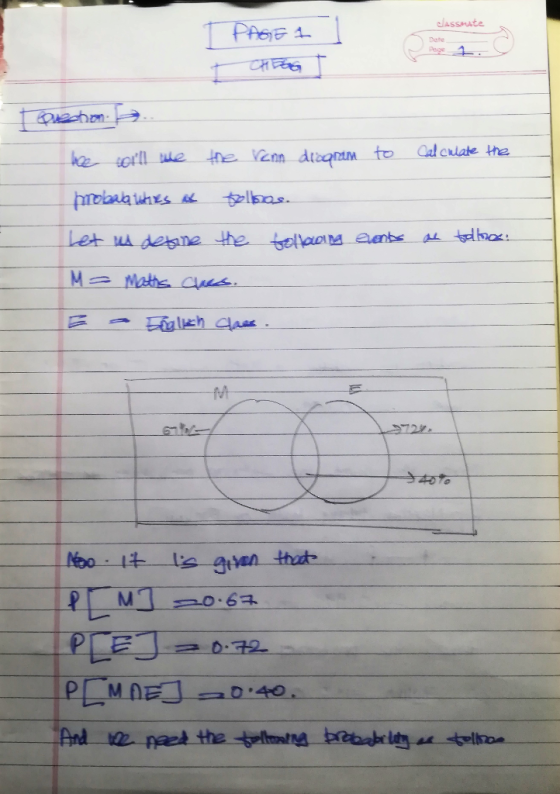 PAGE 1
classmate
Date
Page 1.
CHEGG
Question. →..
We will use the Venn diagram to Calculate the
probabilities as follows.
Let us define the following events as follows:
M = Maths Class.
E = English Class.
M E
67% 72%
40%
Now. it is given that
P[M] = 0.67
P[E] = 0.72
P[M∩E] = 0.40.
And we need the following probability as follows